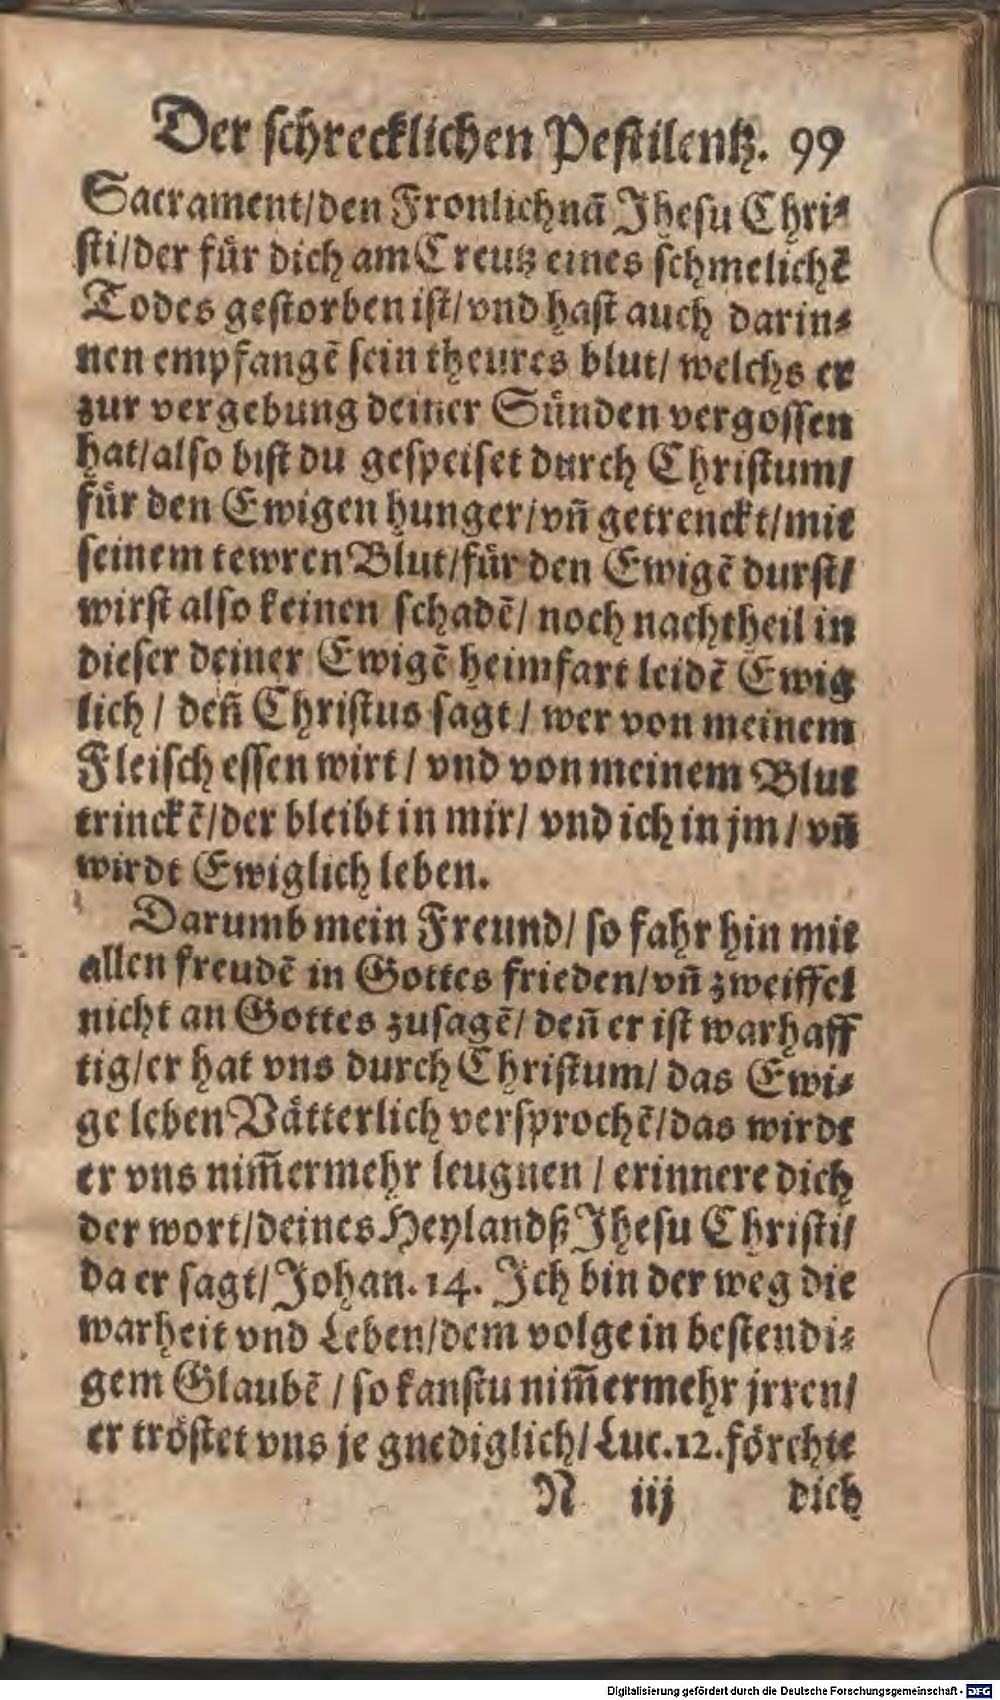 Der schrecklichen Pestilentz. 99
Sacrament/den Fronlichnā Jhesu Chri-
sti/der für dich am Creutz eines schmelichē
Todes gestorben ist/vnd hast auch darin-
nen empfangē sein theures blut/ welchs er
zur vergebung deiner Sünden vergossen
hat/also bist du gespeiset durch Christum/
für den Ewigen hunger/vñ getrenckt/mit
seinem tewren Blut/für den Ewigē durst/
wirst also keinen schadē/ noch nachtheil in
dieser deiner Ewigē heimfart leidē Ewig
lich / deñ Christus sagt / wer von meinem
Fleisch essen wirt / vnd von meinem Blut
trinckē/der bleibt in mir/ vnd ich in jm / vñ
wirdt Ewiglich leben.
Darumb mein Freund/ so fahr hin mit
allen freudē in Gottes frieden/vñ zweiffel
nicht an Gottes zusagē/ deñ er ist warhaff
tig/er hat vns durch Christum/ das Ewi-
ge leben Vätterlich versprochē/das wirdt
er vns nim̄ermehr leugnen / erinnere dich
der wort/deines Heylandß Jhesu Christi/
da er sagt/Johan. 14. Jch bin der weg die
warheit vnd Leben/dem volge in bestendi-
gem Glaubē / so kanstu nim̄ermehr jrren/
er tröstet vns je gnediglich/Luc.12.förchte
N iij dich
Digitalisierung gefördert durch die Deutsche Forschungsgemeinschaft - DFG